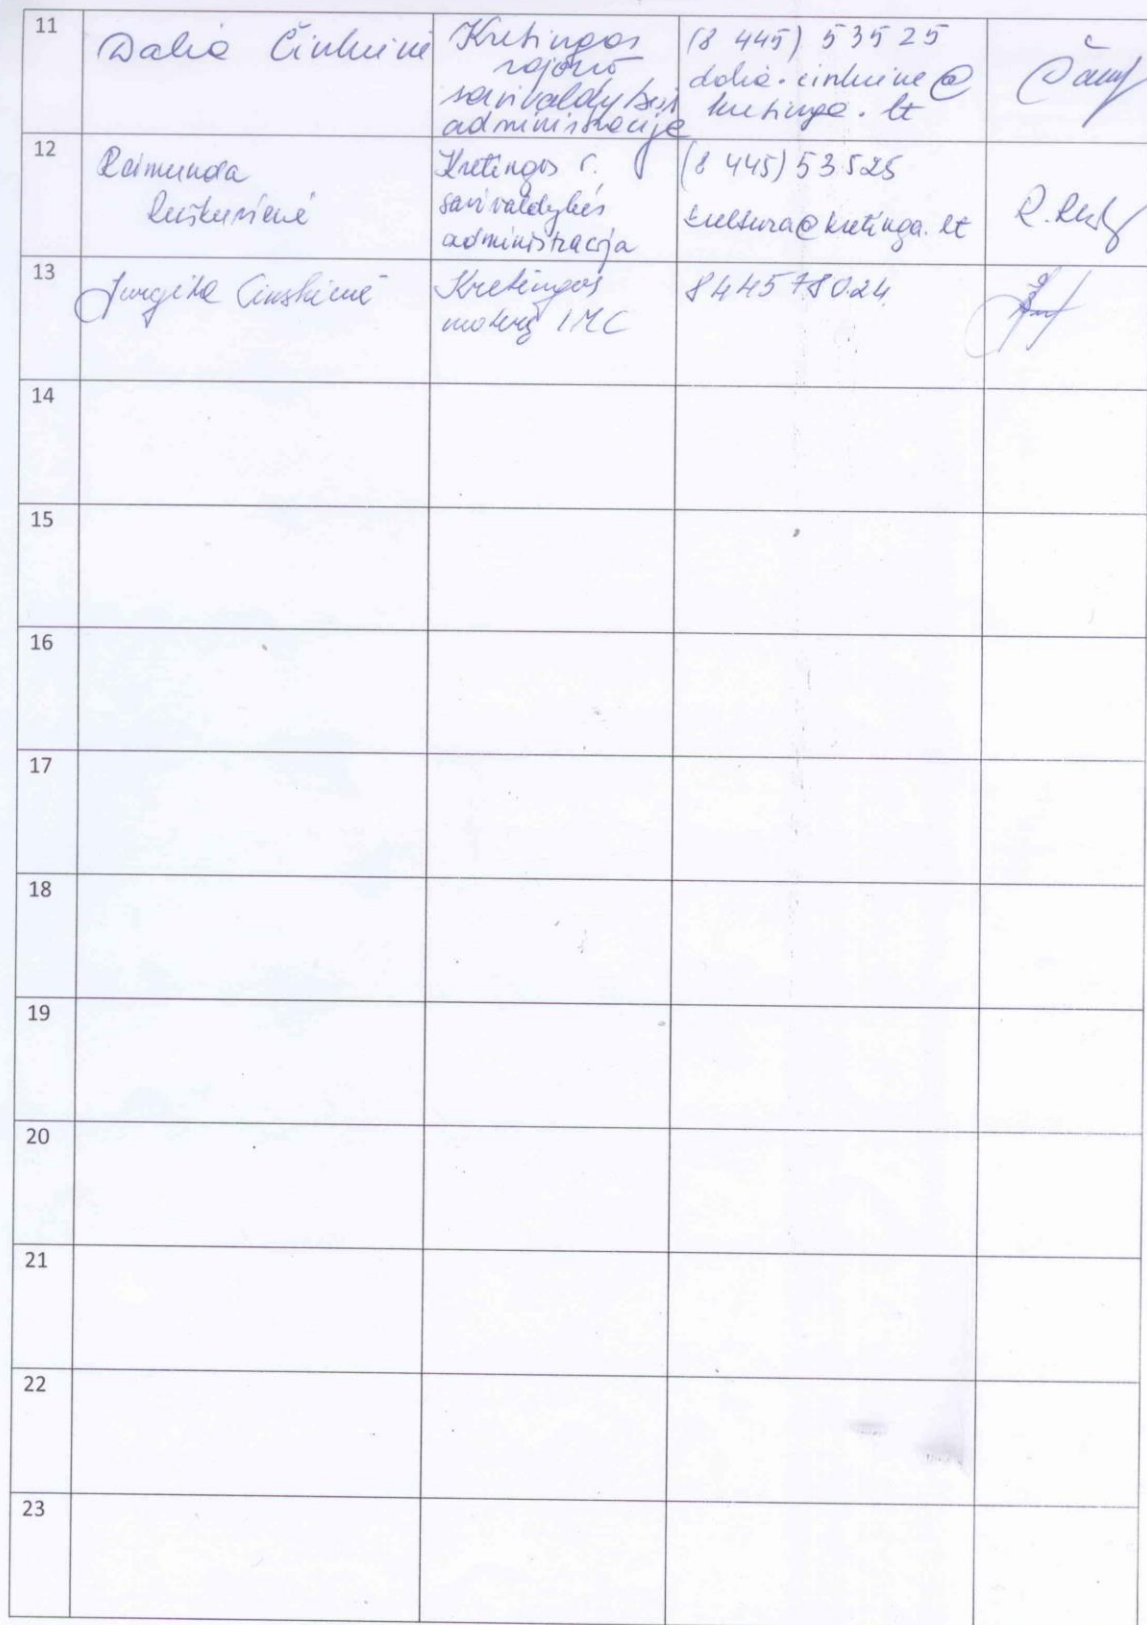 11 Dalia Činkienė Kretingos rajono savivaldybės administracija (8 445) 53525 dalia.cinkiene@kretinga.lt
12 Raimunda Kretingos r. savivaldybės administracija (8 445) 53525 kultura@kretinga.lt
13 Jurgita Činskienė Kretingos moterų IMC 844578024
14
15
16
17
18
19
20
21
22
23